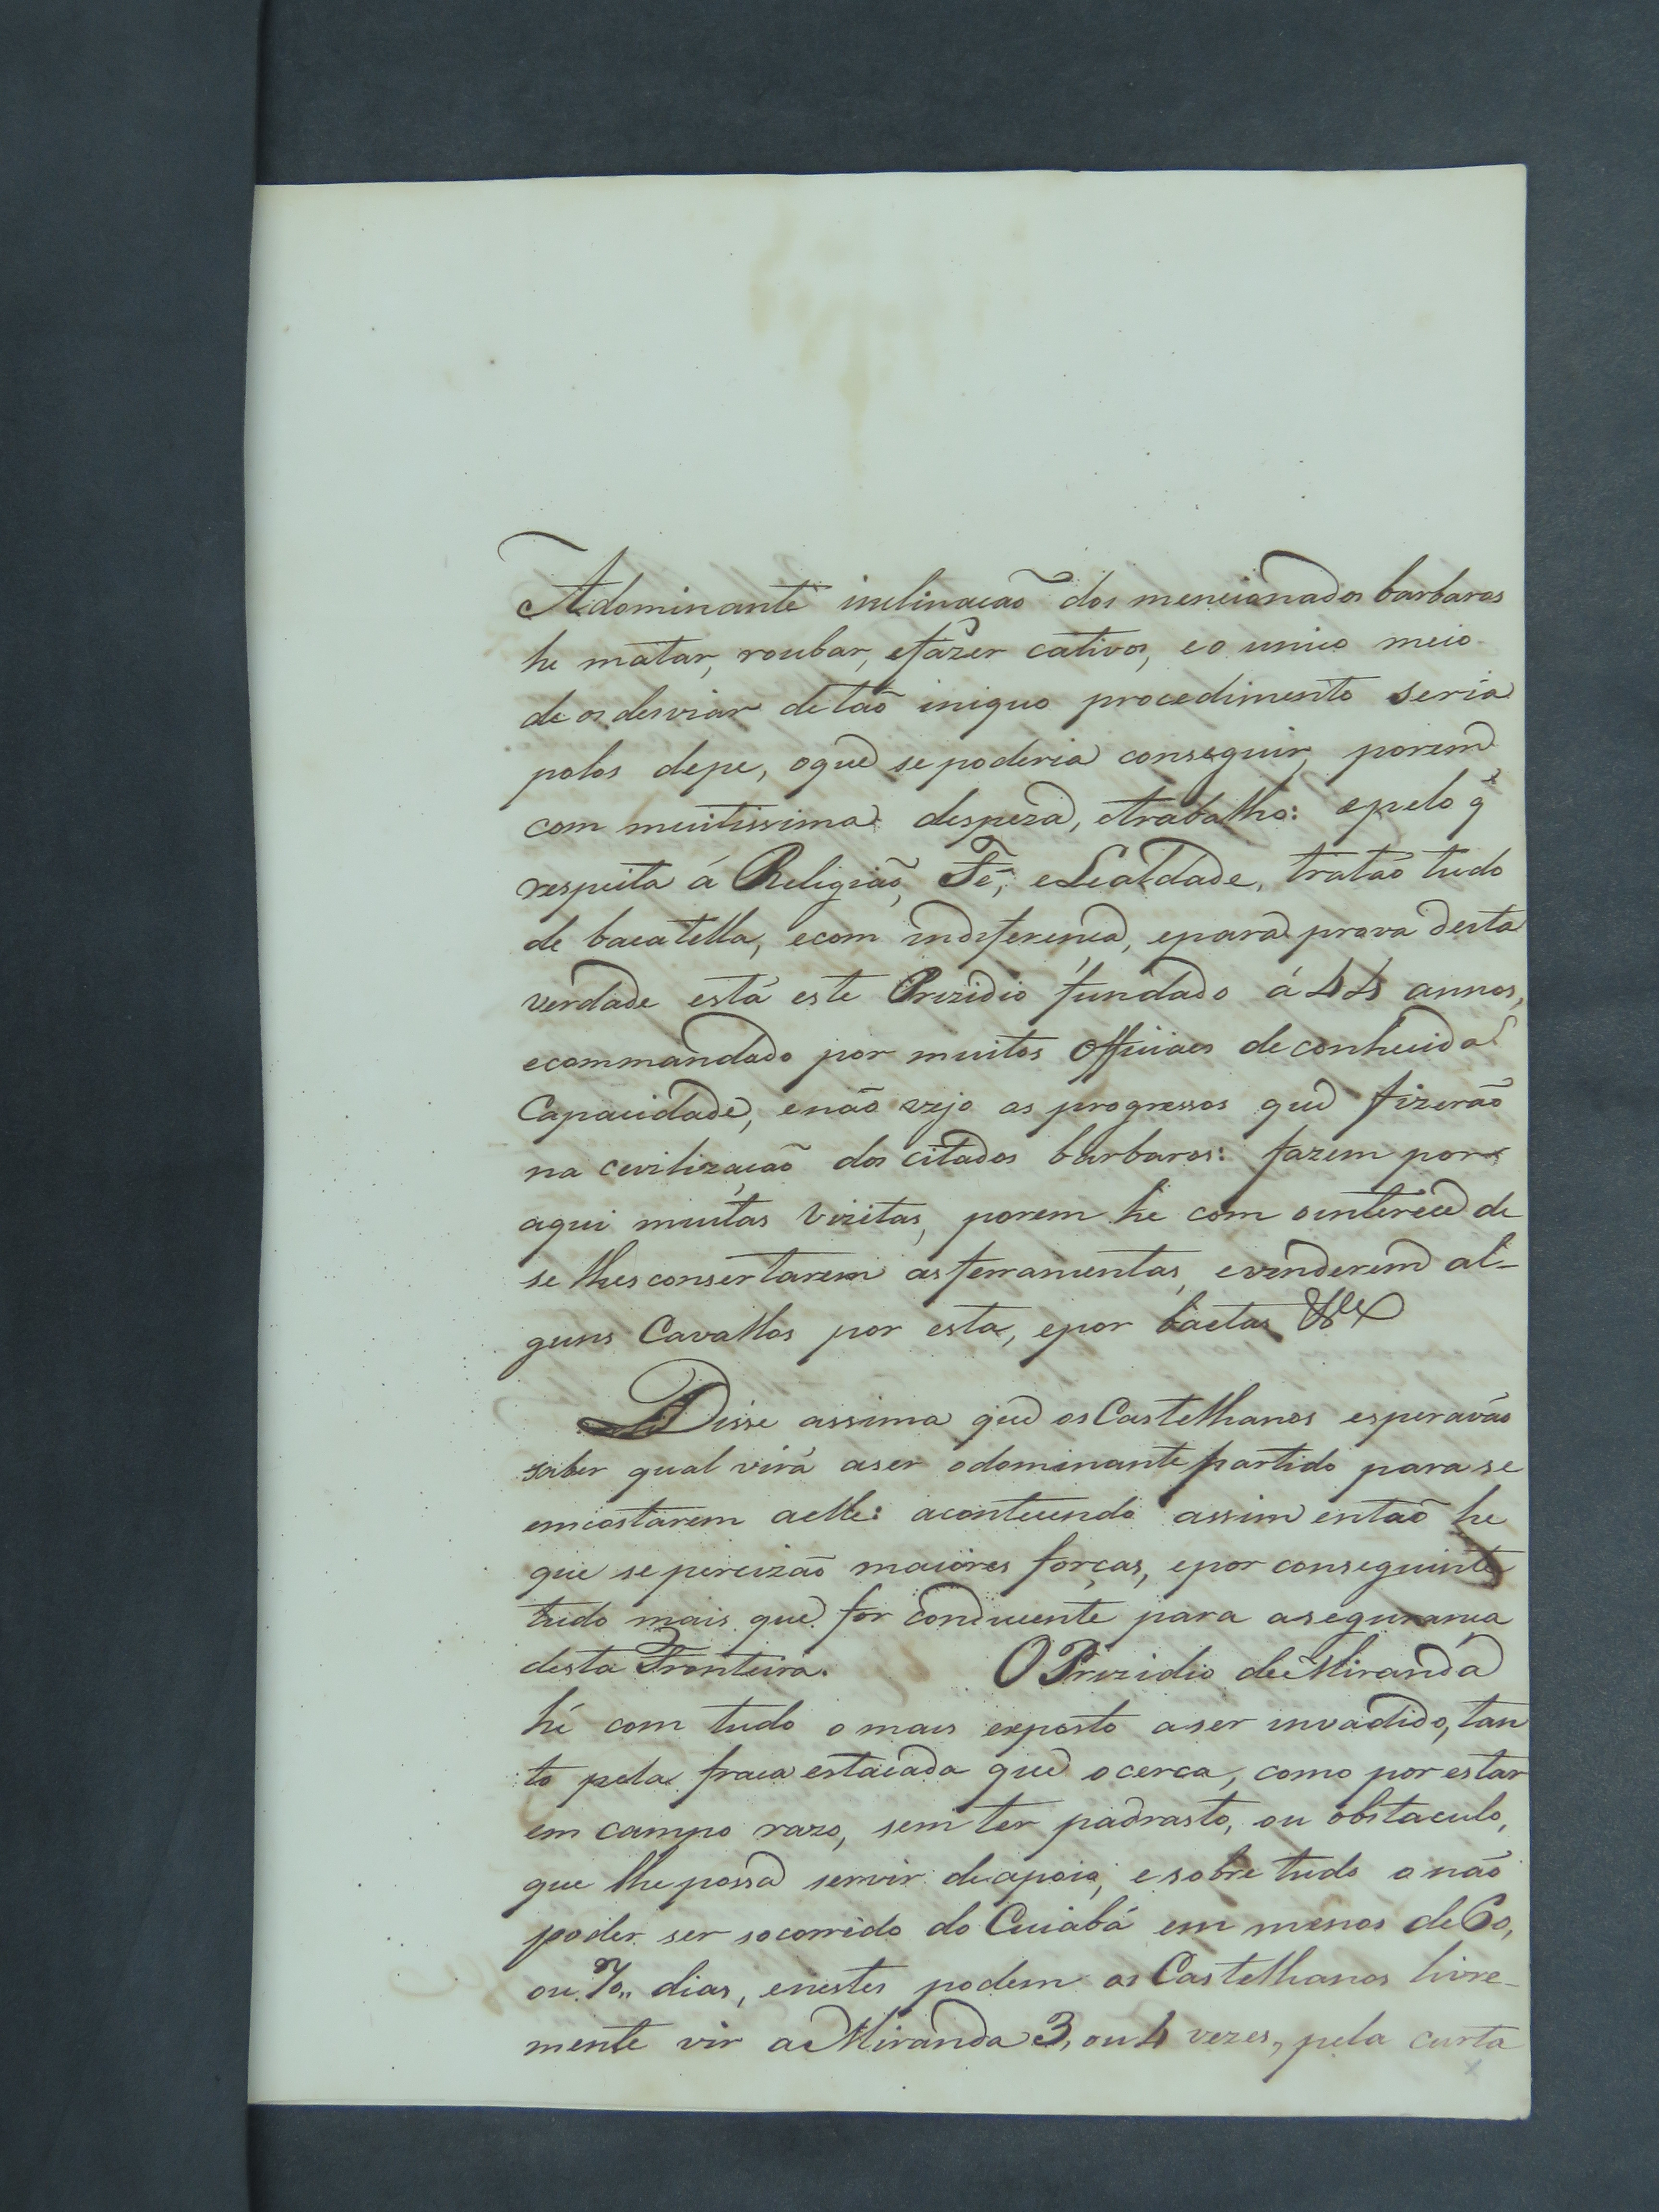 A dominante inclinacaõ dos mencionados barbaros
he matar, roubar, e fazer cativos, e o unico meio
de os desviar de taõ iniguo procedimento seria
polos depe, o que se poderia conseguir, porem
com muitissima despeza, e trabalho: e pelo q̃
respeita á Religiaõ, Fé, e Lealdade, trataõ tudo
de bacatella, e com indiferença, e para prova desta
verdade está este Prezidio fundado á 44 annos,
e commandado por muitos Officiaes de conhecida
Capacidade, e não vejo os progressos que fizeraõ
na cevilizaçaõ dos citados barbaros: fazem por
aqui muitas vizitas, porem he com o interece de
se lhes consertarem as ferramentas, e venderem al-
guns Cavallos por esta, e por baetas &&
Disse assima que os Castelhanos esperavaõ
saber qual virá a ser o dominante partido para se
emcostarem a elle: acontecendo assim entaõ he
que se percizaõ maiores forças, e por conseguinte
tudo mais que for conducente para a segurança
desta Fronteira. O Prezidio de Miranda
hé com tudo o mais exposto a ser invadido, tan
to pela fraca estacada que o cerca, como por estar
em campo razo, sem ter padrasto, ou obstaculo,
que lhe possa servir de apoio, e sobre tudo o naõ
poder ser socorrido do Cuiabá em menos de 60,
ou 70,, dias, e nestes podem os Castelhanos livre-
mente vir a Miranda 3, ou 4 vezes, pela curta